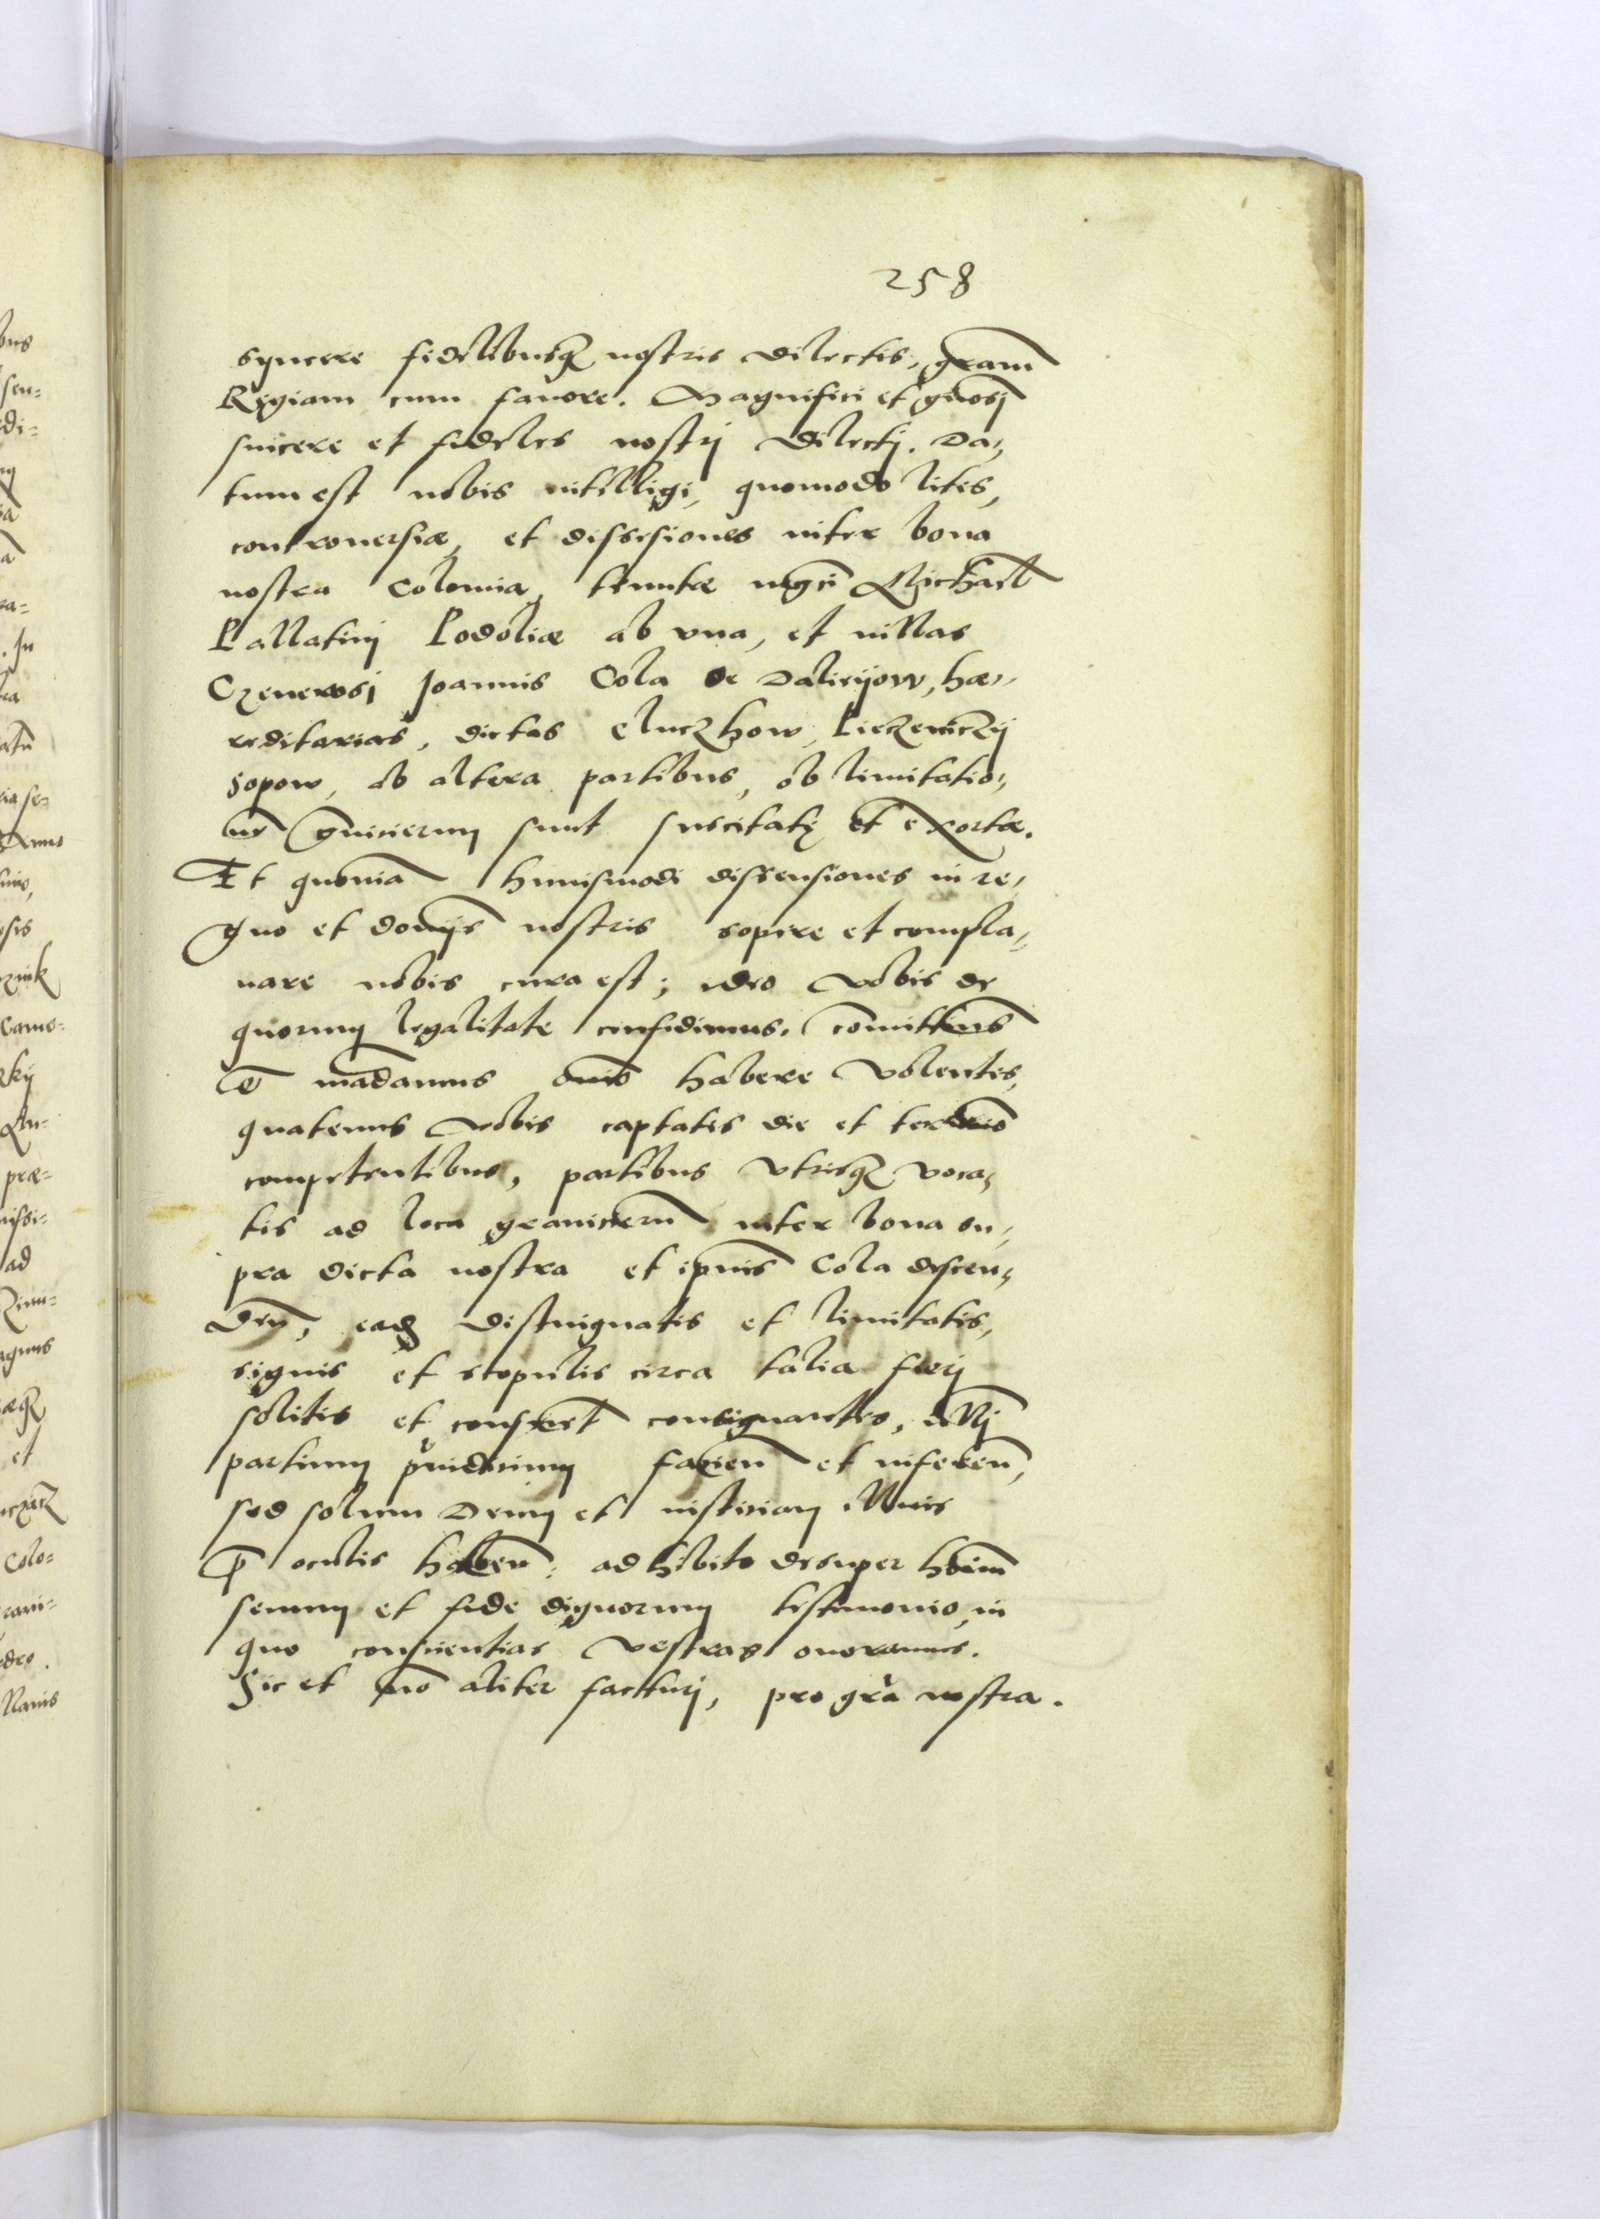 258
syncere fidelibusq̃ nostris dilectis, gr̃am
Regiam cum fauore. Magnifici et gñosj
sincere et fideles nostrj dilectj. Da,,
tum est nobis intelligi, quomodo lites,
controuersiæ, et dissesiones inter bona
nostra Colomia, tenutæ mg̃ci Michael̃
Pallatinj Podoliæ ab vna, et uillas
Generosi Joannis Cola de Daliejow, hæ,,
reditarias, dictas Cluczhow, Pieczeniczÿ
Sopow, ab altera partibus, ob limitatio,,
nẽ grãnicierum sunt suscitatę et exortæ.
Et quoniã huiusmodi dissensiones in re,,
gno et domijs̃ nostris sopire et compla,,
nare nobis cura est; ideo vobis de
quorum legalitate confidimus, com̃ittens̃
mãdamus om̃io habere volentes,
quatenus vobis captatis die et ter̃
competentibus, partibus vtrisq̃ voca,,
tis ad loca granicierũ inter bona su,,
pra dicta nostra et ip̃ius Cola descen,,
deñ, eaq̃ distingnatis et limitatis,
signis et scopulis circa talia fierj
solitis et consuet̃ consignantes, nullj
partium p̃iudicium facien̄ et inferen̄,
sed solum Deum et iusticiam illius
p̄ oculis haben̄: adhibito desuper hoĩm
senum et fide dignorum testimonio, in
quo conscientias vestras oneramus.
Sic et nõ aliter facturj, pro gr̃a nostra.